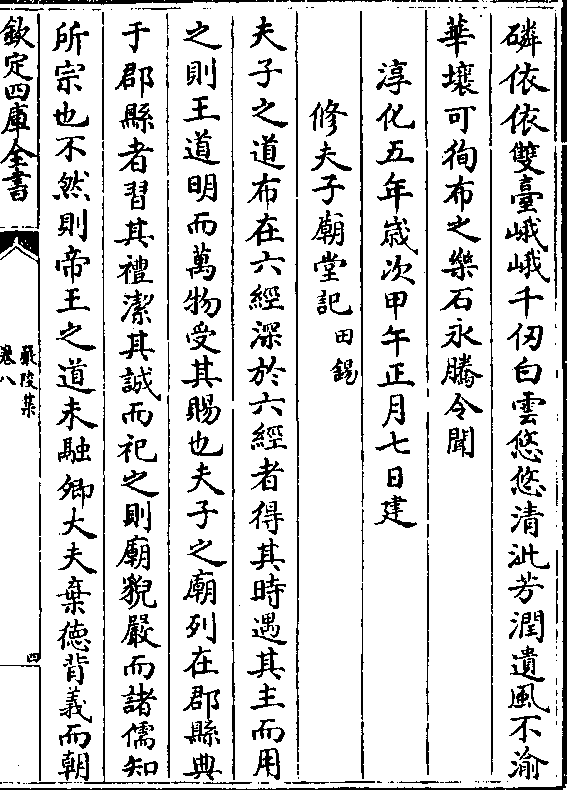 磷依依雙臺峨峨千仞白雲悠悠清沘芳潤遺風不渝
華壤可徇布之樂石永騰令聞
淳化五年歲次甲午正月七日建
修夫子廟堂記田錫
夫子之道布在六經深於六經者得其時遇其主而用
之則王道明而萬物受其賜也夫子之廟列在郡縣典
于郡縣者習其禮潔其誠而祀之則廟貌嚴而諸儒知
所宗也不然則帝王之道未融卿大夫棄德背義而朝
欽定四庫全書
嚴陵集
卷八
四